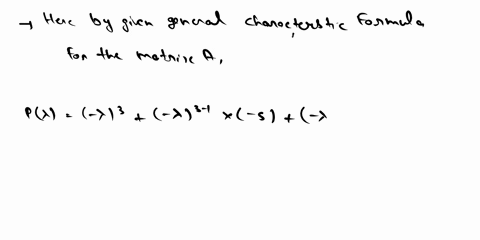 → Here by given general characterstic Formula
For the matrix A,
P(λ) = (-λ)^3 + (-λ)^3-1 × (-5) + (-λ